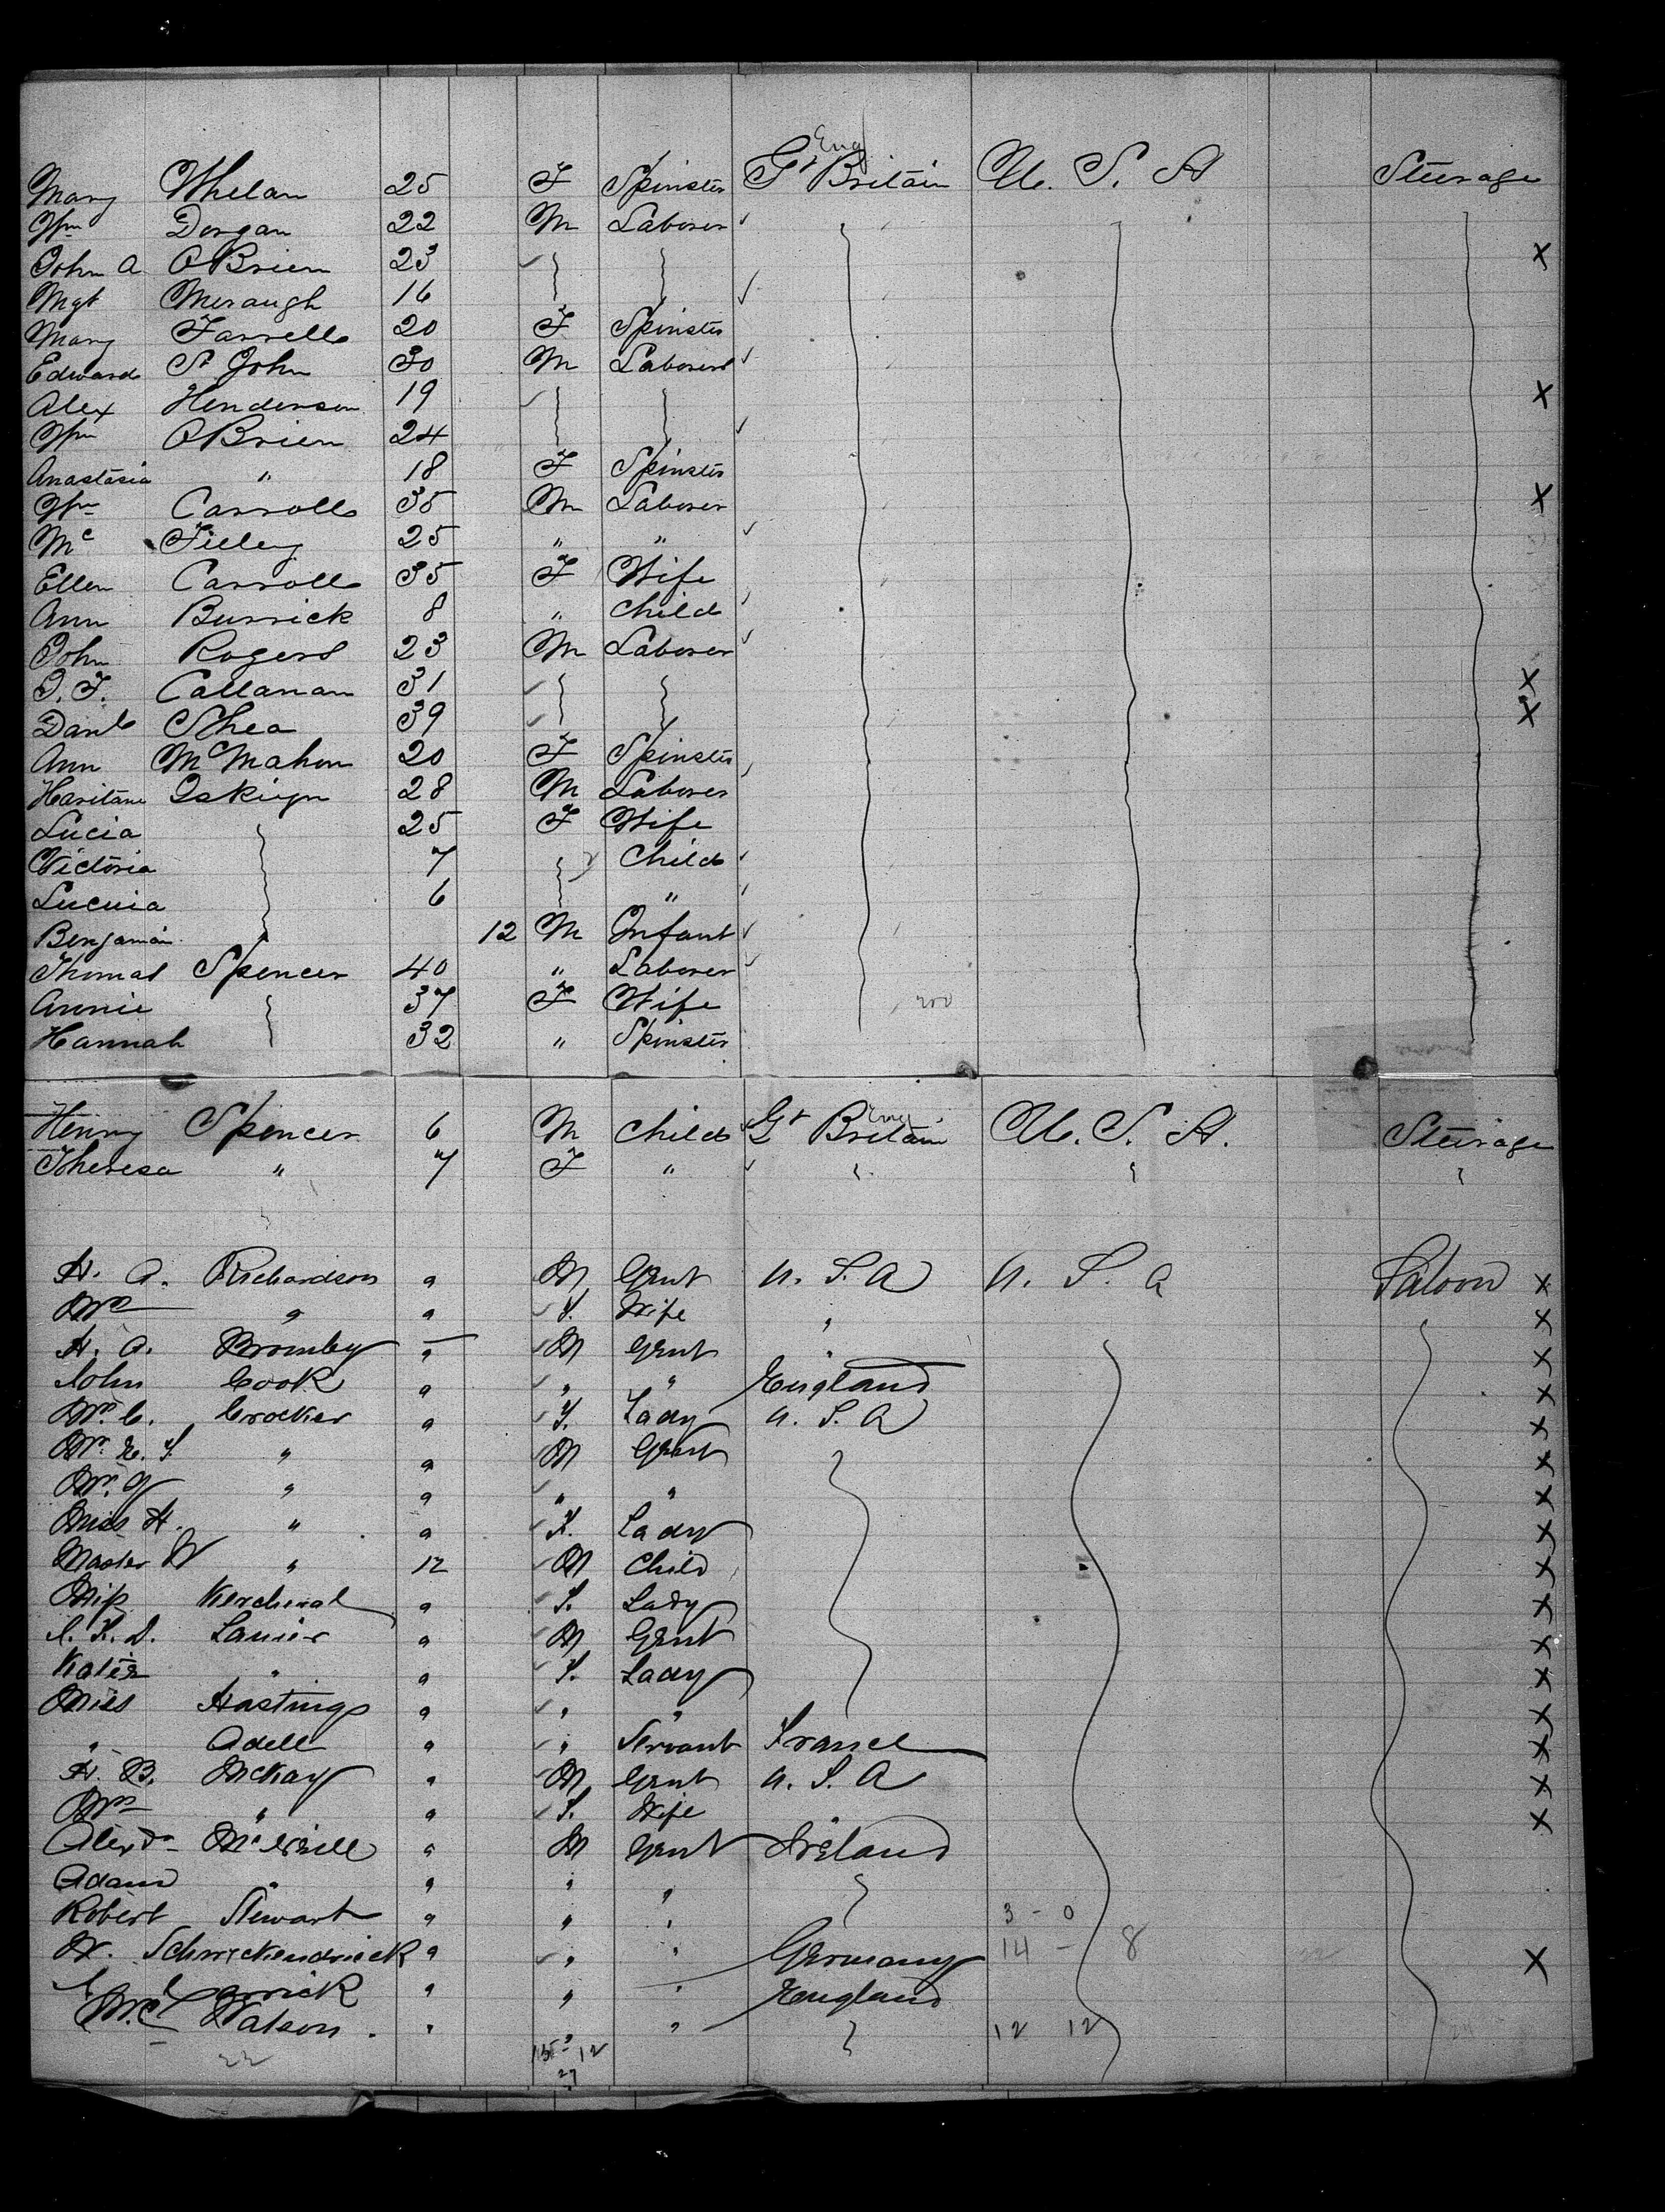 Eng
Mary Whelan 25 F Spinster Gt Britain U. S. A Steerage
Wm Dorgan 22 M Laborer
John A O'Brien 23 X
Mgt Meraugh 16
Mary Farrell 20 F Spinster
Edward St John 30 M Laborer
Alex Henderson 19 X
Wm O'Brien 24
Anastasia " 18 F Spinster
Wm Carroll 35 M Laborer X
Mc Filley 25 " "
Ellen Carroll 35 F Wife
Ann Burrick 8 " Child
John Rogers 23 M Laborer
J. F. Callanan 31 X
Danl Shea 39 X
Ann McMahon 20 F Spinster
28 M Laborer
Lucia 25 F Wife
Victoria 7 Child
Lucuia 6 "
Benjamin 12 M Infant
Thomas Spencer 40 " Laborer
Annie 37 F Wife
Hannah 32 " Spinster
Henry Spencer 6 M Child Gt Britain U. S. A. Steerage
Theresa " 7 F "
H. A. Richardson a M Gent U. S. A U. S. A Saloon X
Mrs " a F. Wife " X
H. A. Bromley " M Gent " X
John Cook a " " England X
Mrs. C. Crocker a F. Lady U. S. A X
Mr. E. F. " a M Gent X
Mr. G " a " " X
Miss H. " a F. Lady X
Master W " 12 M Child X
Miss Kercheval a F. Lady X
J. F. D. Lanier a M Gent X
Katie " a F. Lady X
Miss Hastings a " " X
" Adell a " Servant France X
H. B. McKay a M Gent U. S. A X
Mrs " a F. Wife X
Alexdr McNeill a M Gent Ireland
Adam " a " "
Robert Stewart a " " 3 - 0
W. Schwickendrieck a " " Germany 14 - 8 X
Carrick a " " England
Watson. " " " 12 12
22 15 - 12
27